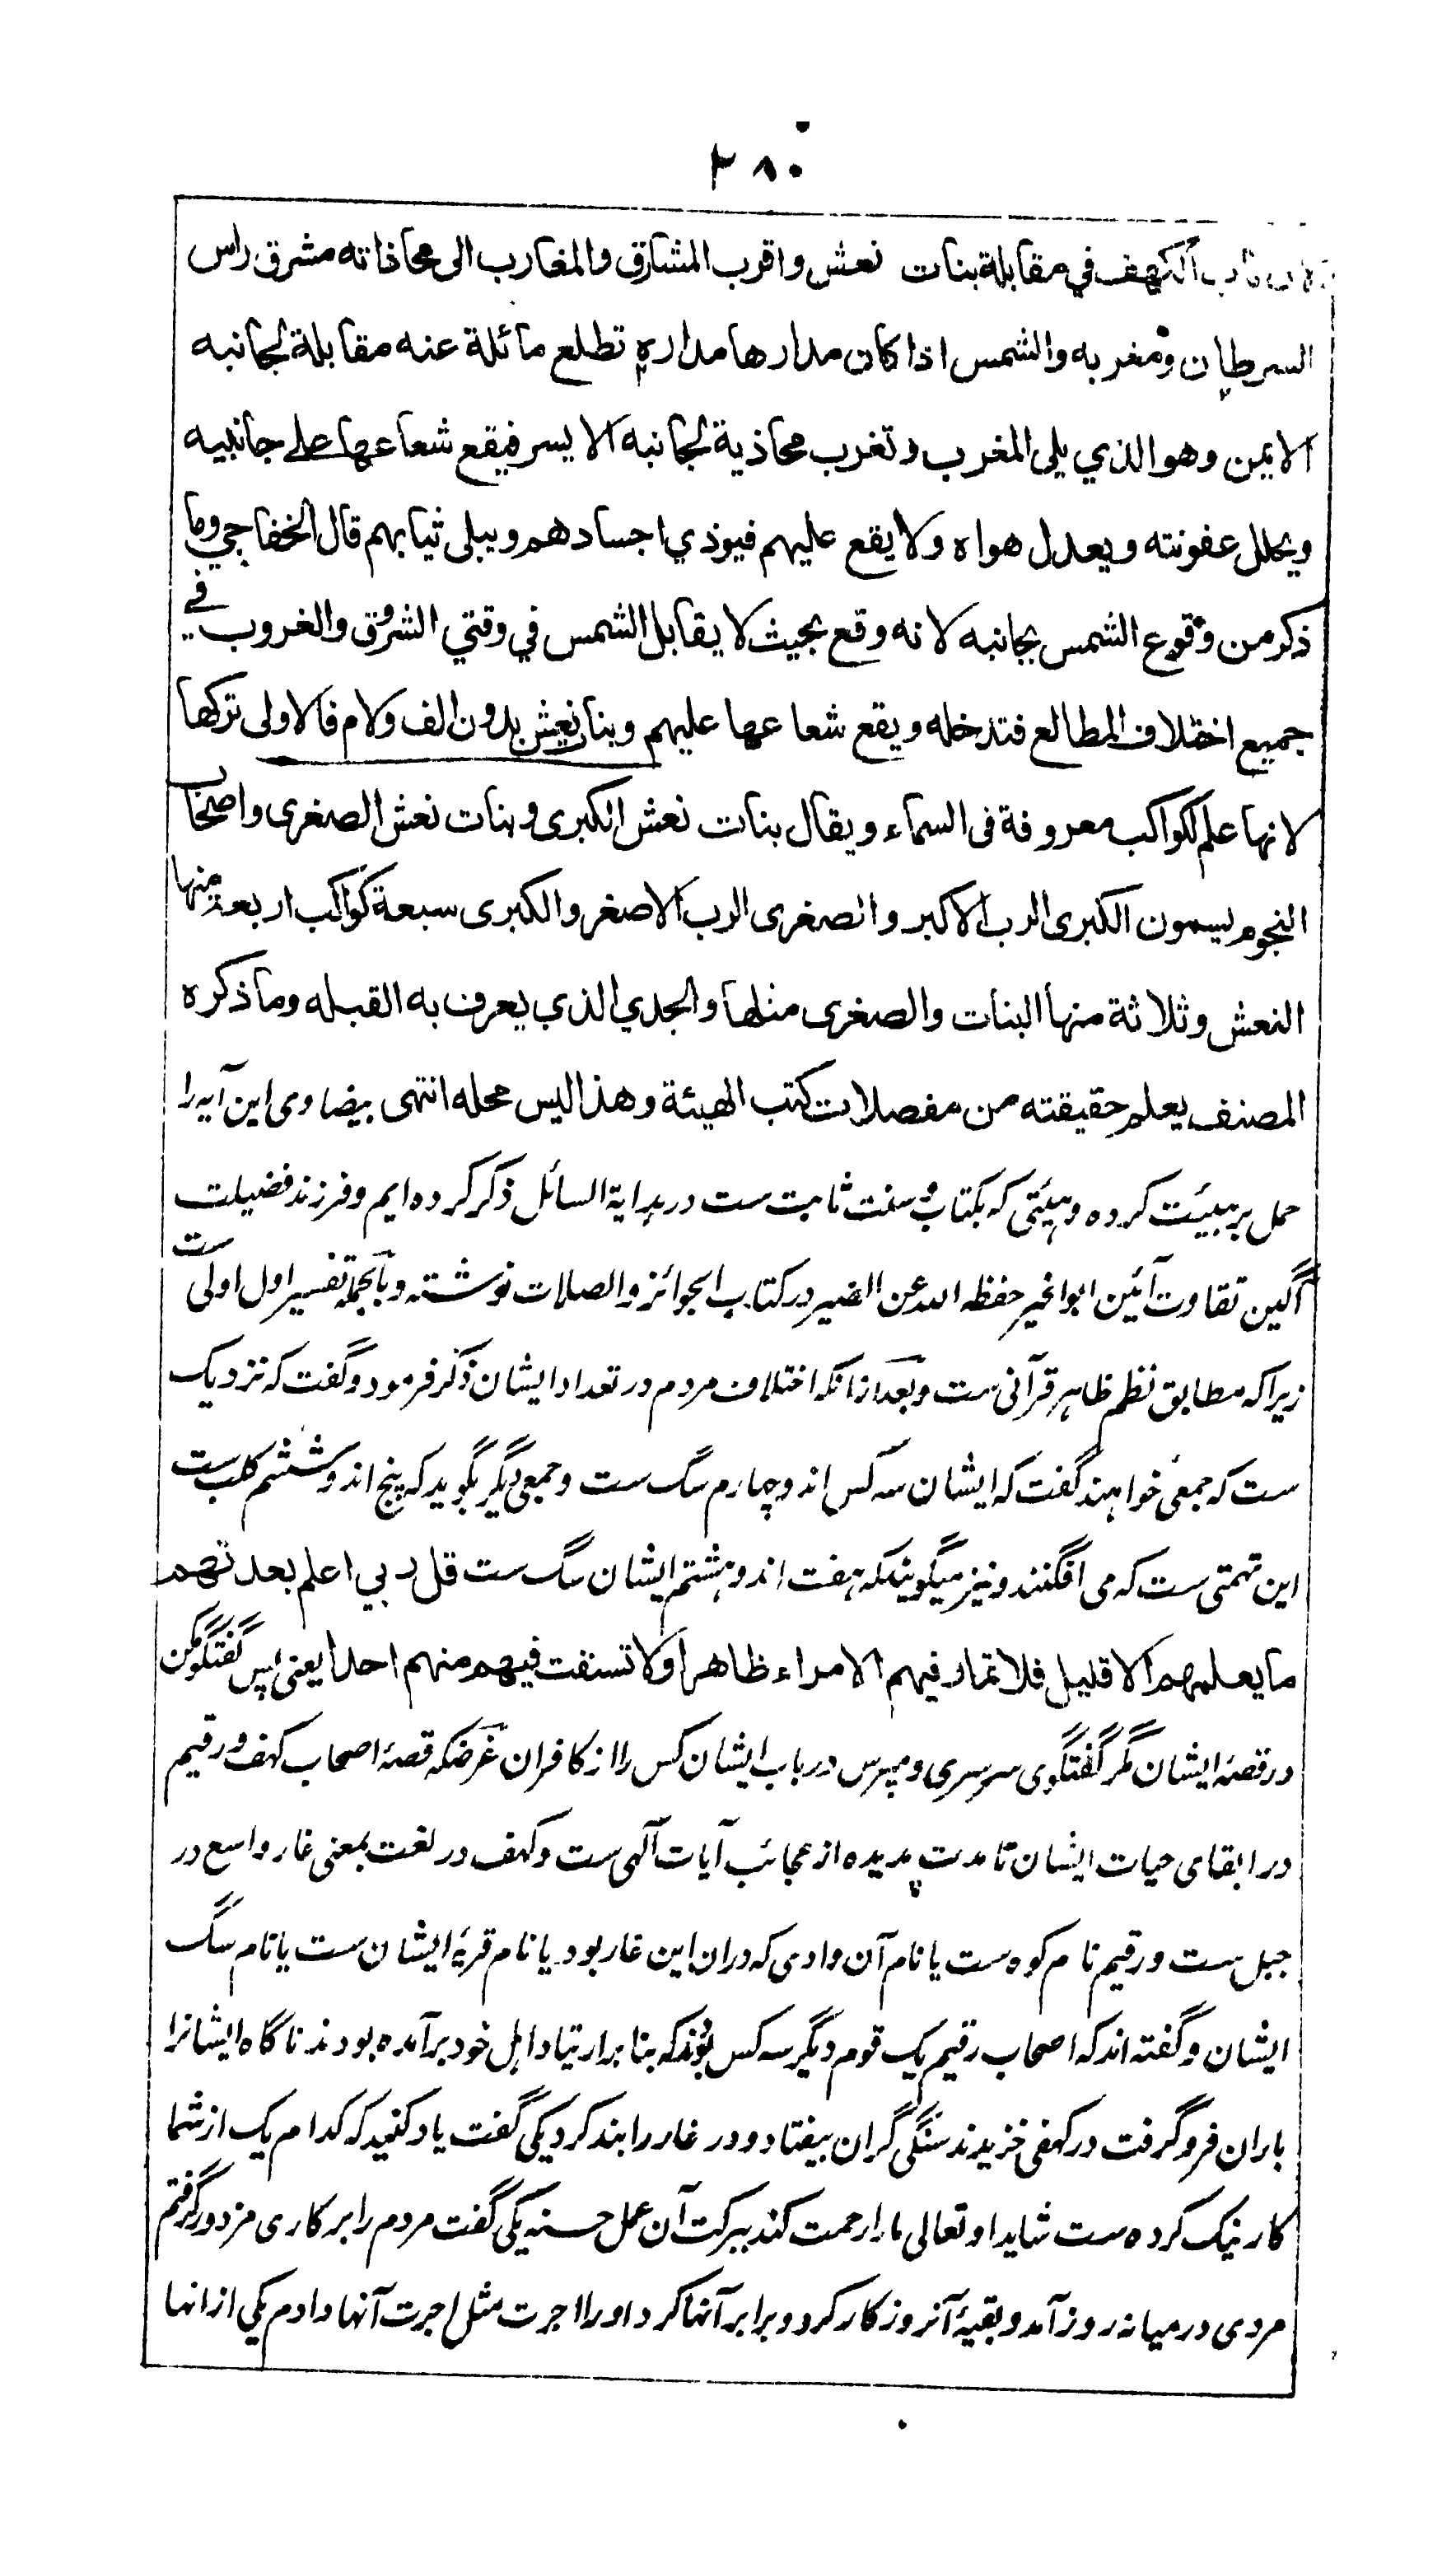 ۲۸۰
باب الكهف في مقابلة بنات نعش واقرب المشارق والمغارب الى محاذاته مشرق راس
السرطان ومغربه والشمس اذا كان مدارها مداره تطلع مائلة عنه مقابلة لجانبه
الايمن وهو الذي يلى المغرب وتغرب محاذية لجانبه الايسر فيقع شعاعها على جانبيه
ويحلل عفونته ويعدل هواه ولا يقع عليهم فيوذي اجسادهم ويبلى ثيابهم قال الخفاجي وما
ذكر من وقوع الشمس بجانبه لانه وقع بحيث لا يقابل الشمس في وقتي الشروق والغروب في
جميع اختلاف المطالع فتدخله ويقع شعاعها عليهم وبنات نعش بدون الف ولام فالاولى تركها
لانها علم لكواكب معروفة فى السماء ويقال بنات نعش الكبرى وبنات نعش الصغرى واصحاب
النجوم يسمون الكبرى الدب الاكبر والصغرى الدب الاصغر والكبرى سبعة كواكب اربعة منها
النعش وثلاثة منها البنات والصغرى مثلها والجدي الذي يعرف به القبله وما ذكره
المصنف يعلم حقيقته من مفصلات كتب الهيئة وهذا ليس محله انتهى بيضاوى اين آيه را
حمل بر هيئت كرده و هيئتى كه بكتاب و سنت ثابت ست در هداية السائل ذكر كرده ايم و فرزند فضيلت
آگين تقاوت آئين ابو الخير حفظه الله عن الضير در كتاب الجوائز والصلات نوشته و بالجمله تفسير اول اولى ست
زيرا كه مطابق نظم ظاهر قرآنى ست و بعد ازانكه اختلاف مردم در تعداد ايشان ذكر فرمود و گفت كه نزديك
ست كه جمعى خواهند گفت كه ايشان سه كس اند و چارم سگ ست و جمعى ديگر بگويد كه پنج اند و ششم كلب ست
اين تهمتى ست كه مى افگنند و نيز ميگويند كه هفت اند و هشتم ايشان سگ ست قل ربي اعلم بعدتهم
ما يعلمهم الا قليل فلا تمار فيهم الا مراء ظاهرا ولا تستفت فيهم منهم احدا يعنى پس گفتگو مكن
در قصهٔ ايشان مگر گفتگوى سرسرى و مپرس در باب ايشان كس را از كافران غرضكه قصهٔ اصحاب كهف و رقيم
در ابقاى حيات ايشان تا مدت مديده از عجائب آيات آلهى ست و كهف در لغت بمعنى غار واسع در
جبل ست و رقيم نام كوه ست يا نام آن وادى كه دران اين غار بود يا نام قريهٔ ايشان ست يا نام سگ
ايشان و گفته اند كه اصحاب رقيم يك قوم ديگر سه كس بودند كه بنا بر ارتياد اهل خود برآمده بودند ناگاه ايشانرا
باران فرو گرفت در كهفى خزيدند سنگى گران بيفتاد و در غار را بند كرد يكى گفت ياد كنيد كه كدام يك از شما
كار نيك كرده ست شايد او تعالى ما را رحمت كند ببركت آن عمل حسنه يكى گفت مردم را بر كارى مزدور گرفتم
مردى درميانه روز آمد و بقيهٔ آنروز كار كرد و برابر آنها كرد او را اجرت مثل اجرت آنها دادم يكى از انها